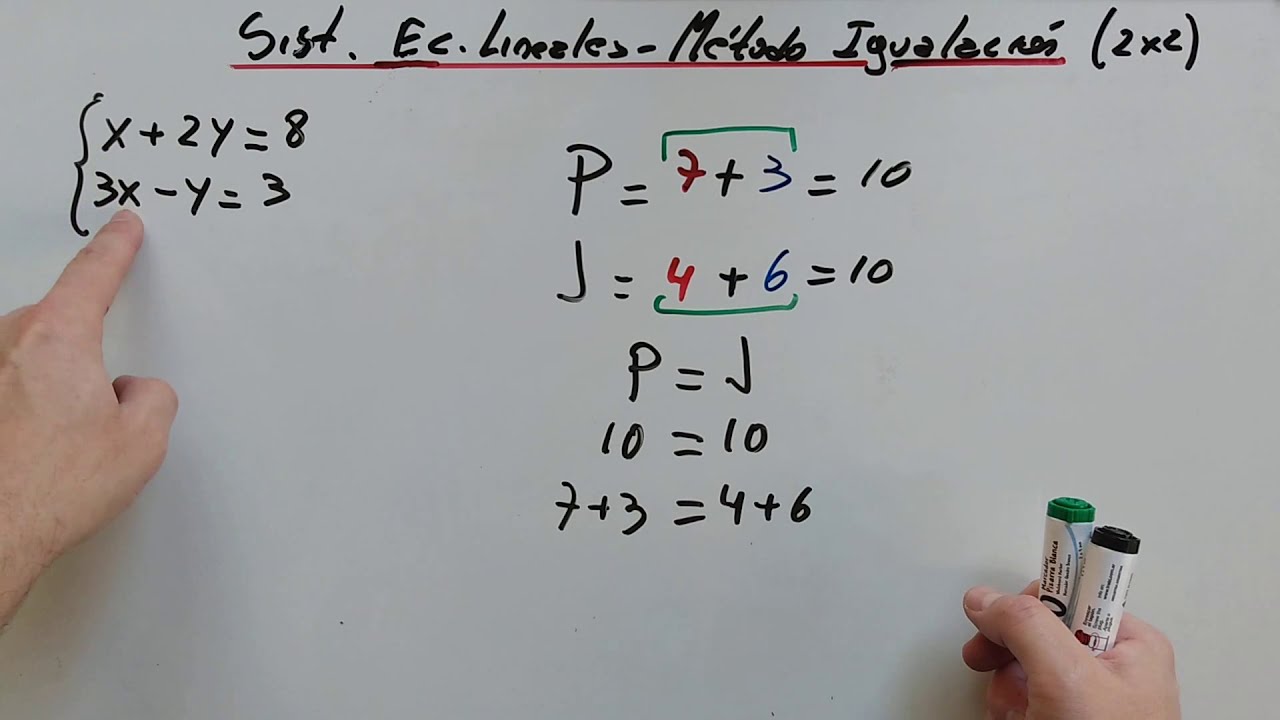 Sist. Ec. Lineales - Método Igualación (2x2)
x + 2y = 8
3x - y = 3
P = 7 + 3 = 10
J = 4 + 6 = 10
P = J
10 = 10
7 + 3 = 4 + 6
Marcador
Pizarra Blanca